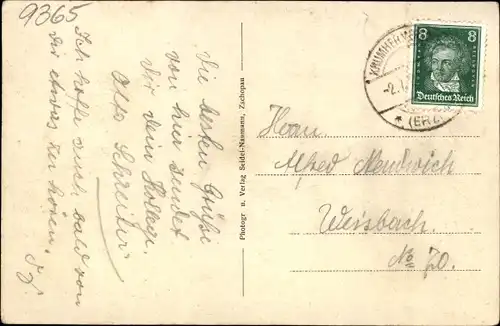 9365
Die besten Grüße
von hier sendet
Dir dein Kollege
Otto Schreiter
Ich hoffe auch bald von
Dir etwas zu hören.
Photogr. u. Verlag Seidel-Naumann, Zschopau
8 8
Deutsches Reich
KRUMHERMERSDORF
-2.1
* (ERZ
Herrn
Alfred
Weisbach
No 70.